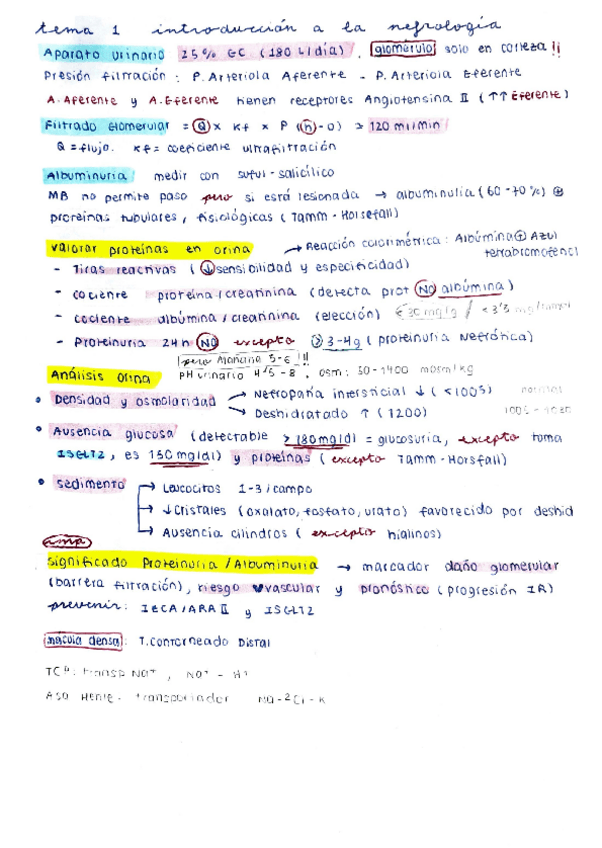 tema 1 introducción a la nefrología
Aparato urinario 25% GC (180 L/día). glomérulo solo en corteza!!
Presión filtración: P. Arteriola Aferente - P. Arteriola Eferente
A. Aferente y A. Eferente tienen receptores Angiotensina II (↑↑ Eferente)
Filtrado Glomerular = Q x Kf x P (h-o) ≥ 120 ml/min
Q = flujo. Kf = coeficiente ultrafiltración
Albuminuria medir con sulfu-salicílico
MB no permite paso pero si está lesionada → albuminuria (60-70%) ⊕
proteínas tubulares, fisiológicas (Tamm-Horsfall)
valorar proteínas en orina → Reacción colorimétrica: Albúmina ⊕ Azul
tetrabromofenol
- Tiras reactivas (↓ sensibilidad y especificidad)
- cociente proteína/creatinina (detecta prot NO albúmina)
- cociente albúmina/creatinina (elección) 30 mg/g /
- Proteinuria 24h NO excepto 3-4g (proteinuria Nefrótica)
Análisis orina
pero Mañana 5-6!!!
PH urinario 4'5-8. osm: 50-1400 mosm/kg
• Densidad y osmolaridad → Nefropatía intersticial ↓ (<1005)
→ Deshidratado ↑ (1200)
• Ausencia glucosa (detectable > 180mg/dl = glucosuria, excepto toma
ISGLT2, es 150 mg/dl) y proteínas (excepto Tamm-Horsfall)
• sedimento → Leucocitos 1-3/campo
→ ↓Cristales (oxalato, fosfato, urato) favorecido por deshid
→ Ausencia cilindros (excepto hialinos)
significado Proteinuria/Albuminuria → marcador daño glomerular
(barrera filtración), riesgo ♥vascular y pronóstico (progresión IR)
prevenir: IECA/ARA II y ISGLT2
macula densa: T. contorneado Distal
TCP: transp Na+, Na+ - H+
Asa Henle- transportador Na-2Cl-K